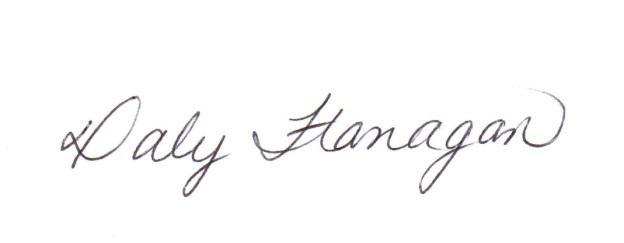 Daly Flanagan